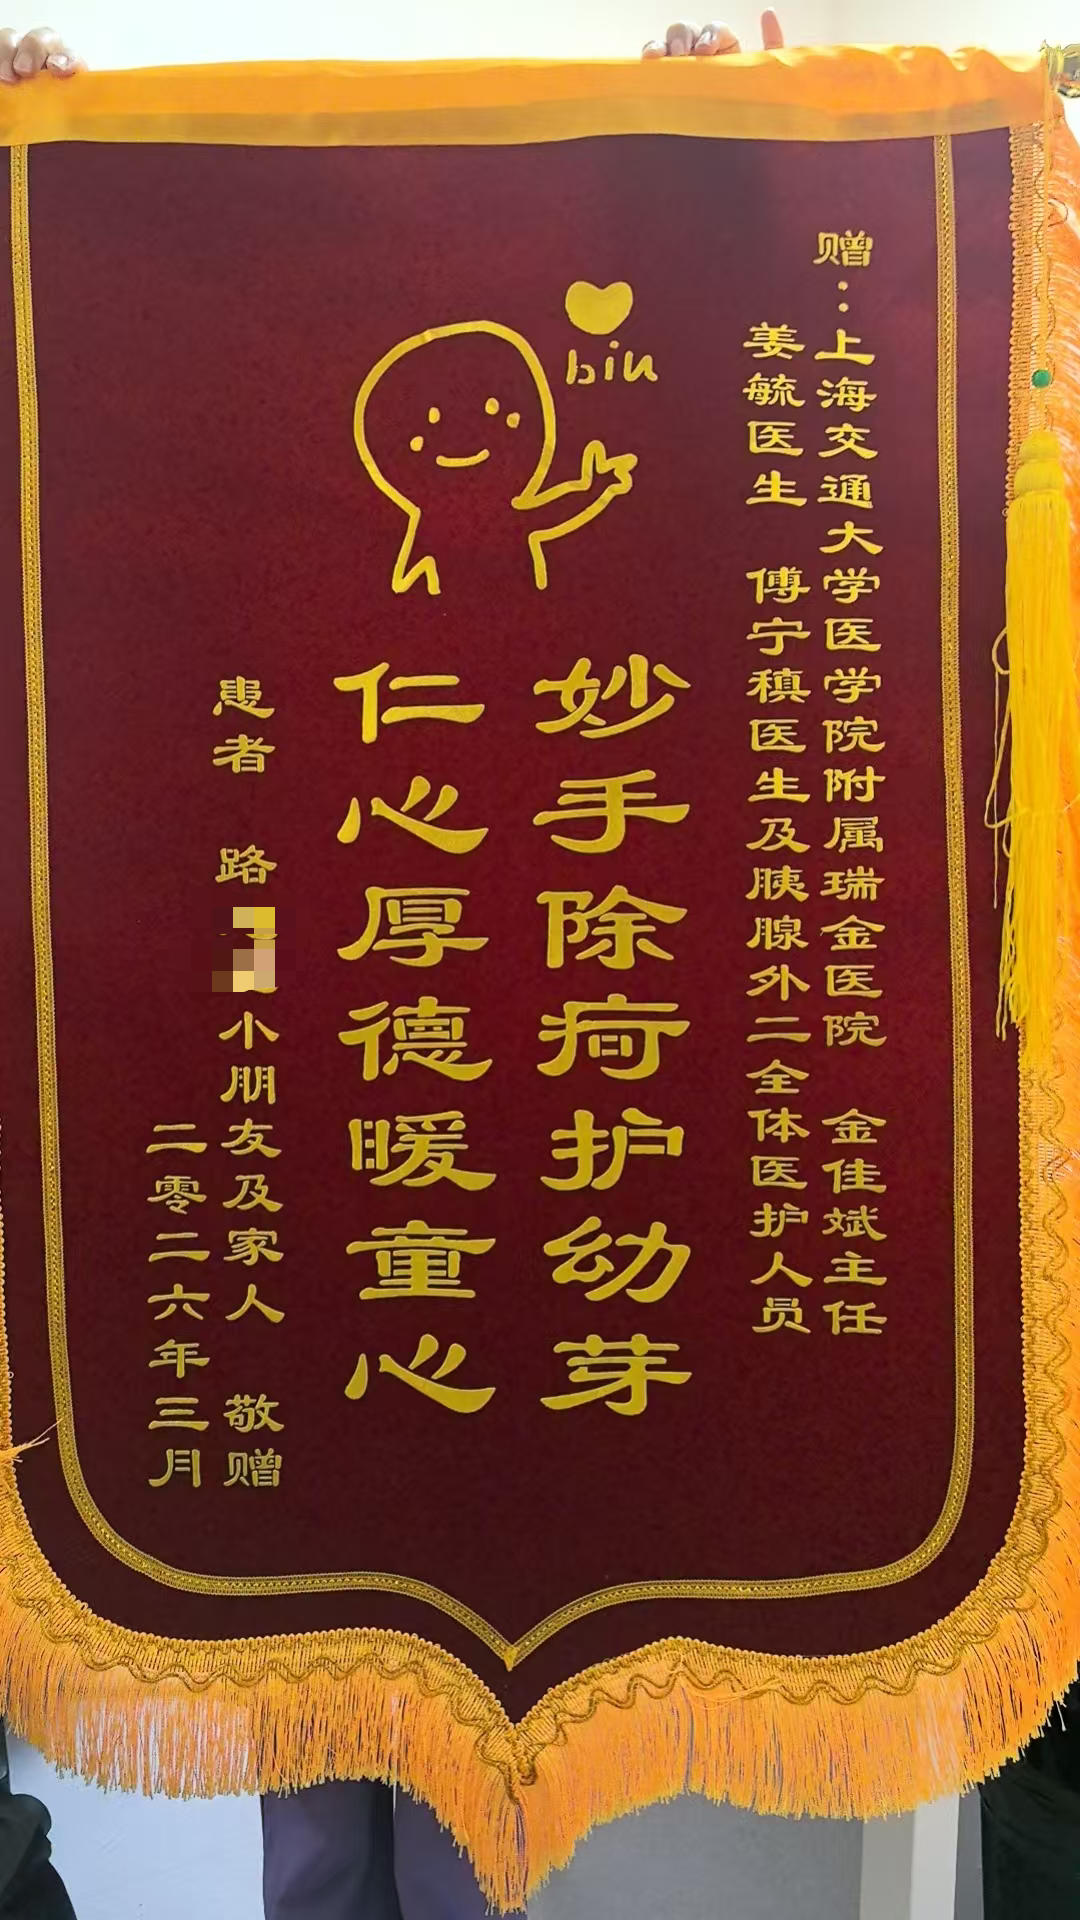 赠：上海交通大学医学院附属瑞金医院 金佳斌主任
姜毓医生 傅宁稹医生及胰腺外二全体医护人员
biu
妙手除疴护幼芽
仁心厚德暖童心
患者 路 小朋友及家人 敬赠
二零二六年三月